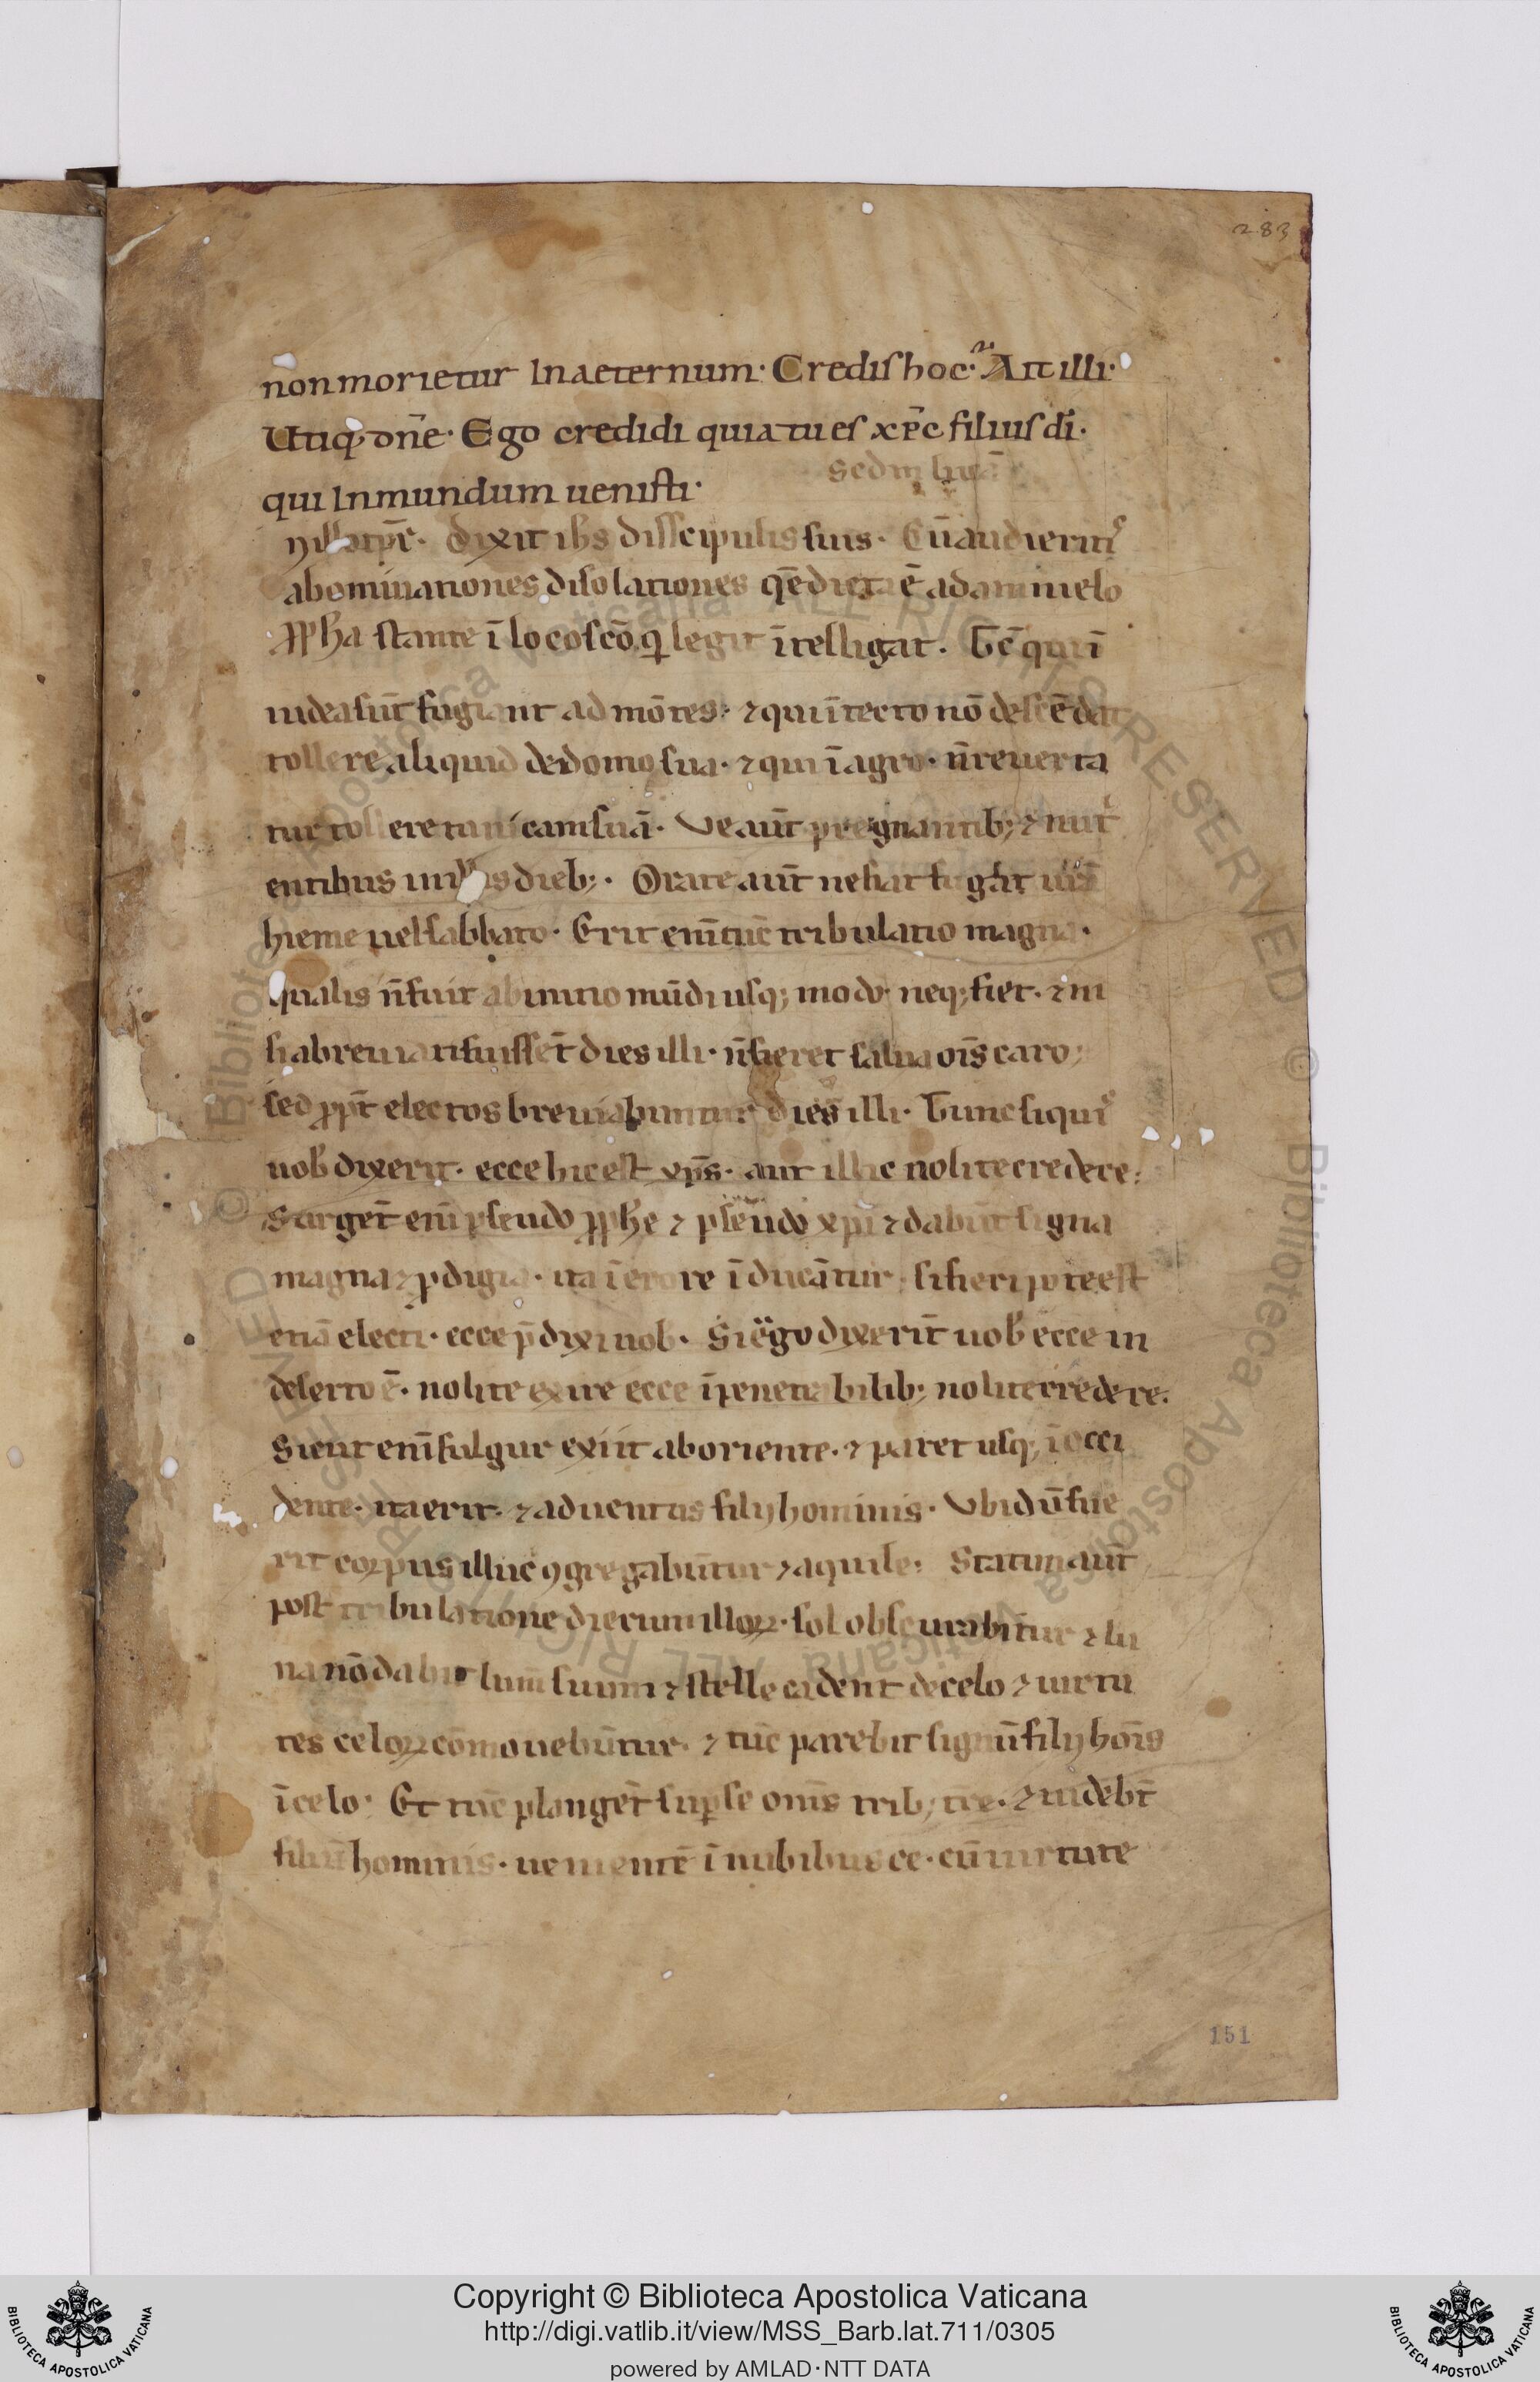 283
non morietur In aeternum· Credis hoc· Ait illi·
Utiq; dñe· Ego credidi quia tu es xp̄c filius dī·
qui In mundum uenisti·
sedm̄
dixit ihs disscipulis suis· Cū audieritis
abominationes disolationes quē dicta ē a danihelo
ꝓpha stante ī loco scō q legit ītelligat· Tc̄ qui ī
iudea sūt fugiant ad mōtes· ⁊ qui ītecto nō descēdat
tollere aliquid de domo sua· ⁊ qui ī agro· n̄ reuerta
tur tollere tunicam suā· Ve aūt pregnantib; ⁊ nutⁱ
entibus in illis dieb;· Orate aūt ne fiat fuga
hieme uel sabbato· Erit enī tūc tribulatio magna·
qualis n̄ fuit ab initio mūdi usq; modo· neq; fiet· ⁊ ni
si abreuiati fuissēt dies illi· n̄ fieret salua ois̄ caro;
sed ꝓpt̄ electos breuiabuntur dies illi· Tunc siquis
uob̄ dixerit· ecce hic est xp̄s· aut illic nolite credere;
Surgēt enī pseudo ꝓphe ⁊ pseudo xp̄i ⁊ dabūt signa
magna ⁊ ꝓdigia· ita ī erore ī ducātur· si fieri potest
etiā electi· ecce p̄dixi uob· Si ego dixerīt uob̄ ecce in
deserto ē· nolite exire ecce ī penetrabilib; nolite credere·
Sicut enī fulgur exiit ab oriente· ⁊ paret usq; ī occi
dente· ita erit· ⁊ aduentus filii hominis· Vbi dū fue
rit corpus illuc ꝯgregabūtur ⁊ aquile; Statim aūt
post tribulatione dierum illoꝝ· sol obscurabitur ⁊ lu
na nō dabit lum̄ suum ⁊ stelle cadent de celo ⁊ uirtu
tes celoꝝ cōmouebūtur· ⁊ tūc parebit signū filii hoīs
ī celo· Et tūc plangēt suꝑ se omīs trib; tr̄e· ⁊ uidēbt̄
filiū hominis· uenientē ī nubibus ce· cū uirtute
151
Copyright © Biblioteca Apostolica Vaticana
http://digi.vatlib.it/view/MSS_Barb.lat.711/0305
powered by AMLAD·NTT DATA
BIBLIOTECA APOSTOLICA VATICANA
BIBLIOTECA APOSTOLICA VATICANA
© Biblioteca Apostolica Vaticana ALL RIGHTS RESERVED © Biblioteca Apostolica Vaticana ALL RIGHTS RESERVED